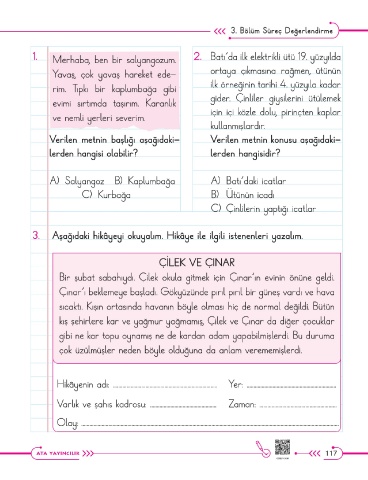 3. Bölüm Süreç Değerlendirme
1. Merhaba, ben bir salyangozum.
Yavaş, çok yavaş hareket ede-
rim. Tıpkı bir kaplumbağa gibi
evimi sırtımda taşırım. Karanlık
ve nemli yerleri severim.
Verilen metnin başlığı aşağıdaki-
lerden hangisi olabilir?
A) Salyangoz B) Kaplumbağa
C) Kurbağa
2. Batı'da ilk elektrikli ütü 19. yüzyılda
ortaya çıkmasına rağmen, ütünün
ilk örneğinin tarihi 4. yüzyıla kadar
gider. Çinliler giysilerini ütülemek
için içi közle dolu, pirinçten kaplar
kullanmışlardır.
Verilen metnin konusu aşağıdaki-
lerden hangisidir?
A) Batı'daki icatlar
B) Ütünün icadı
C) Çinlilerin yaptığı icatlar
3. Aşağıdaki hikâyeyi okuyalım. Hikâye ile ilgili istenenleri yazalım.
ÇİLEK VE ÇINAR
Bir şubat sabahıydı. Çilek okula gitmek için Çınar'ın evinin önüne geldi.
Çınar'ı beklemeye başladı. Gökyüzünde pırıl pırıl bir güneş vardı ve hava
sıcaktı. Kışın ortasında havanın böyle olması hiç de normal değildi. Bütün
kış şehirlere kar ve yağmur yağmamış, Çilek ve Çınar da diğer çocuklar
gibi ne kar topu oynamış ne de kardan adam yapabilmişlerdi. Bu duruma
çok üzülmüşler neden böyle olduğuna da anlam verememişlerdi.
Hikâyenin adı: Yer:
Varlık ve şahıs kadrosu: Zaman:
Olay:
ATA YAYINCILIK
117